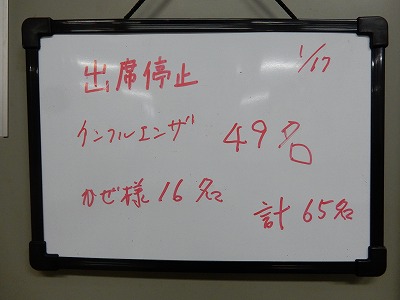 1/17
出席停止
インフルエンザ 49名
かぜ様 16名
計 65名